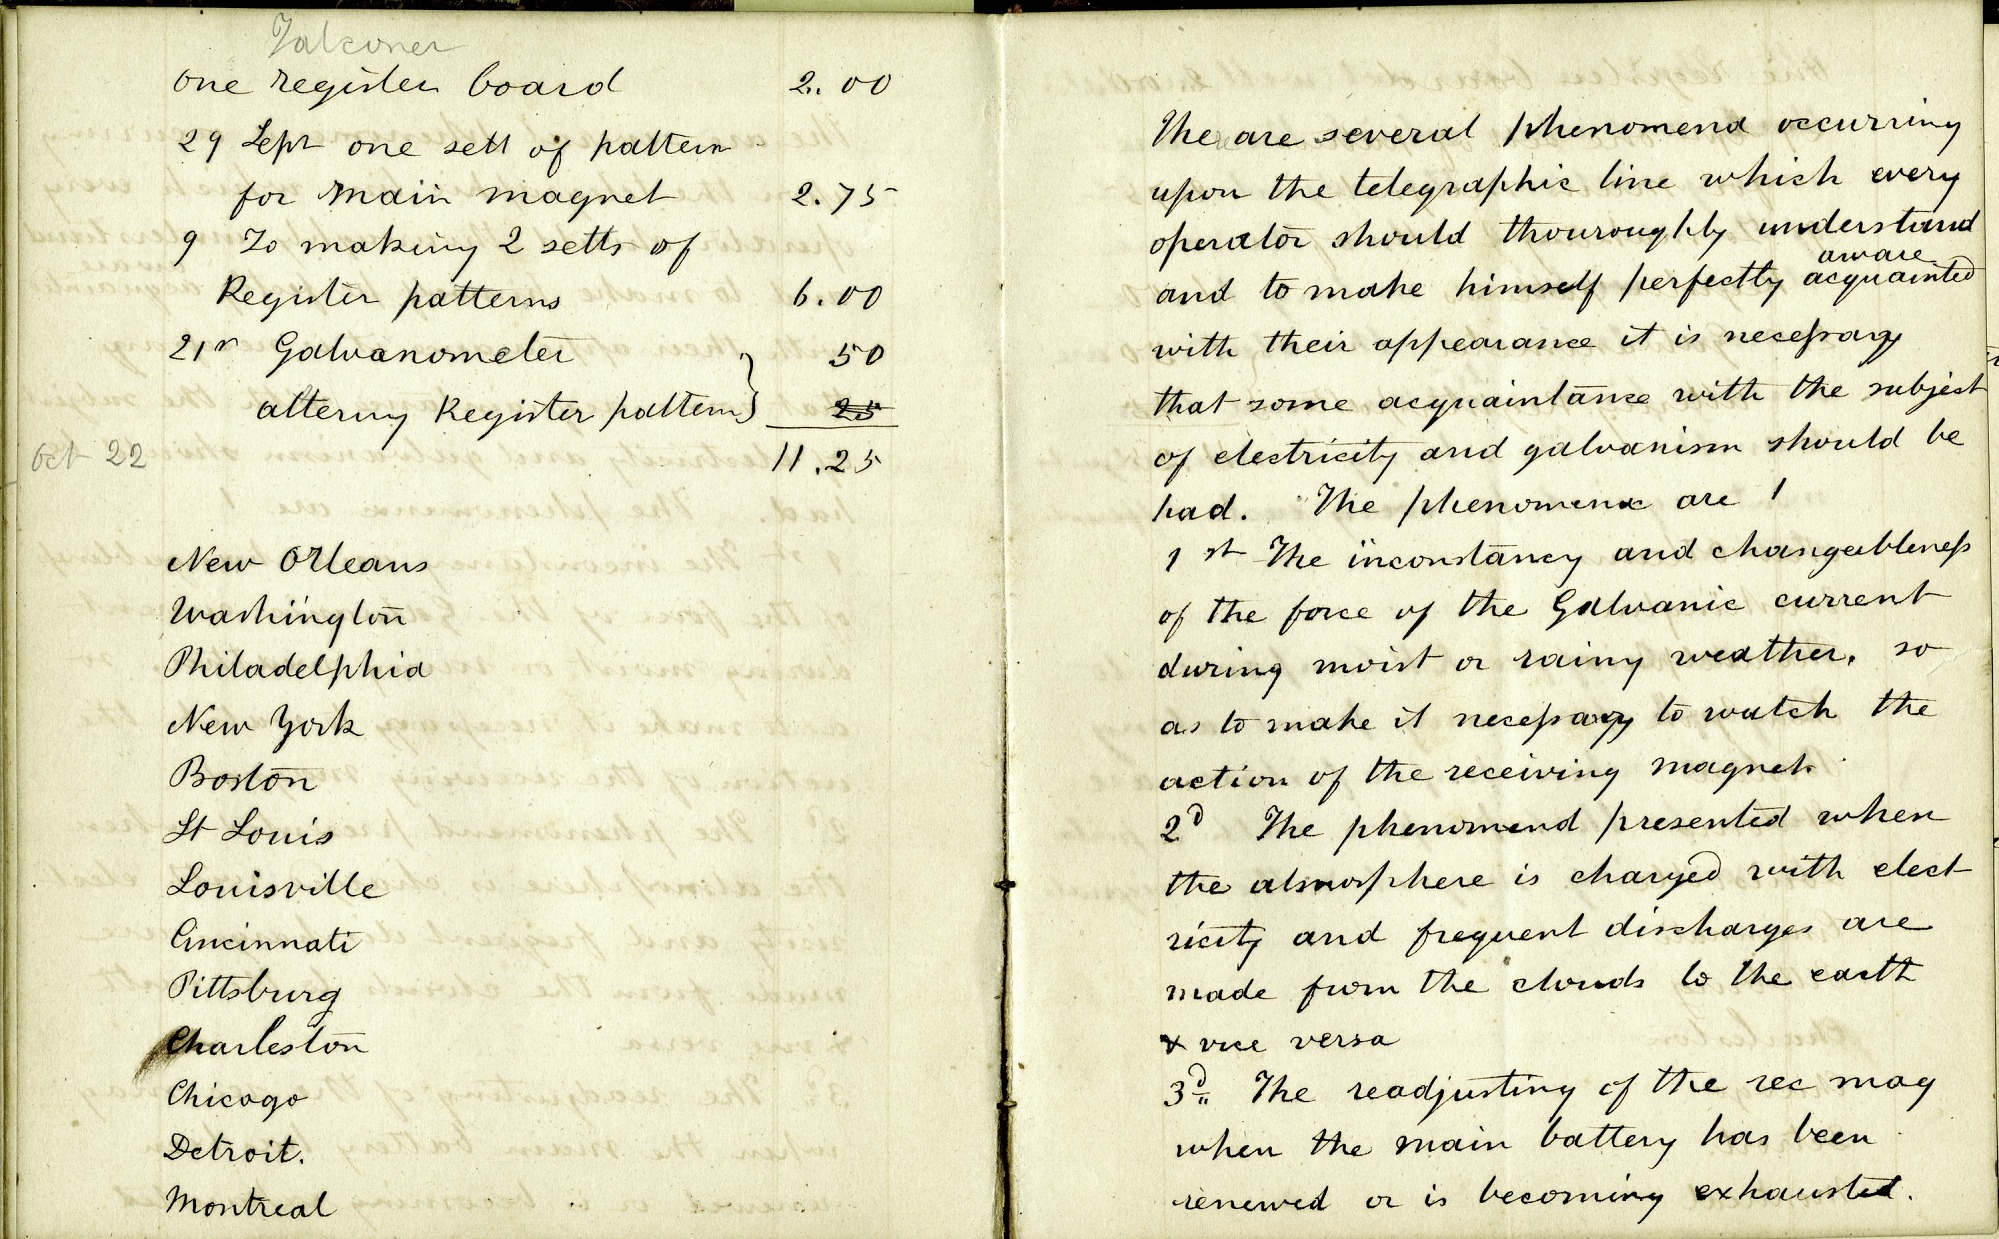 Falconer
one register board 2.00
29 Sept one sett of pattern
for main magnet 2.75
9 To making 2 setts of
Register patterns 6.00
21st Galvanometer 50
altering Register pattern } 25
Oct 22 11.25
New Orleans
Washington
Philadelphia
New York
Boston
St Louis
Louisville
Cincinnati
Pittsburg
Charleston
Chicago
Detroit.
Montreal
The are several phenomena occurring
upon the telegraphic line which every
operator should thouroughly understand
aware
and to make himself perfectly acquainted
with their appearance it is necessary
that some acquaintance with the subject
of electricity and galvanism should be
had. The phenomena are 1
1st The inconstancy and changeableness
of the force of the Galvanic current
during moist or rainy weather, so
as to make it necessary to watch the
action of the receiving magnet.
2d The phenomena presented when
the atmosphere is charged with elect
ricity and frequent discharges are
made from the clouds to the earth
& vice versa
3d. The readjusting of the rec mag
when the main battery has been
renewed or is becoming exhausted.